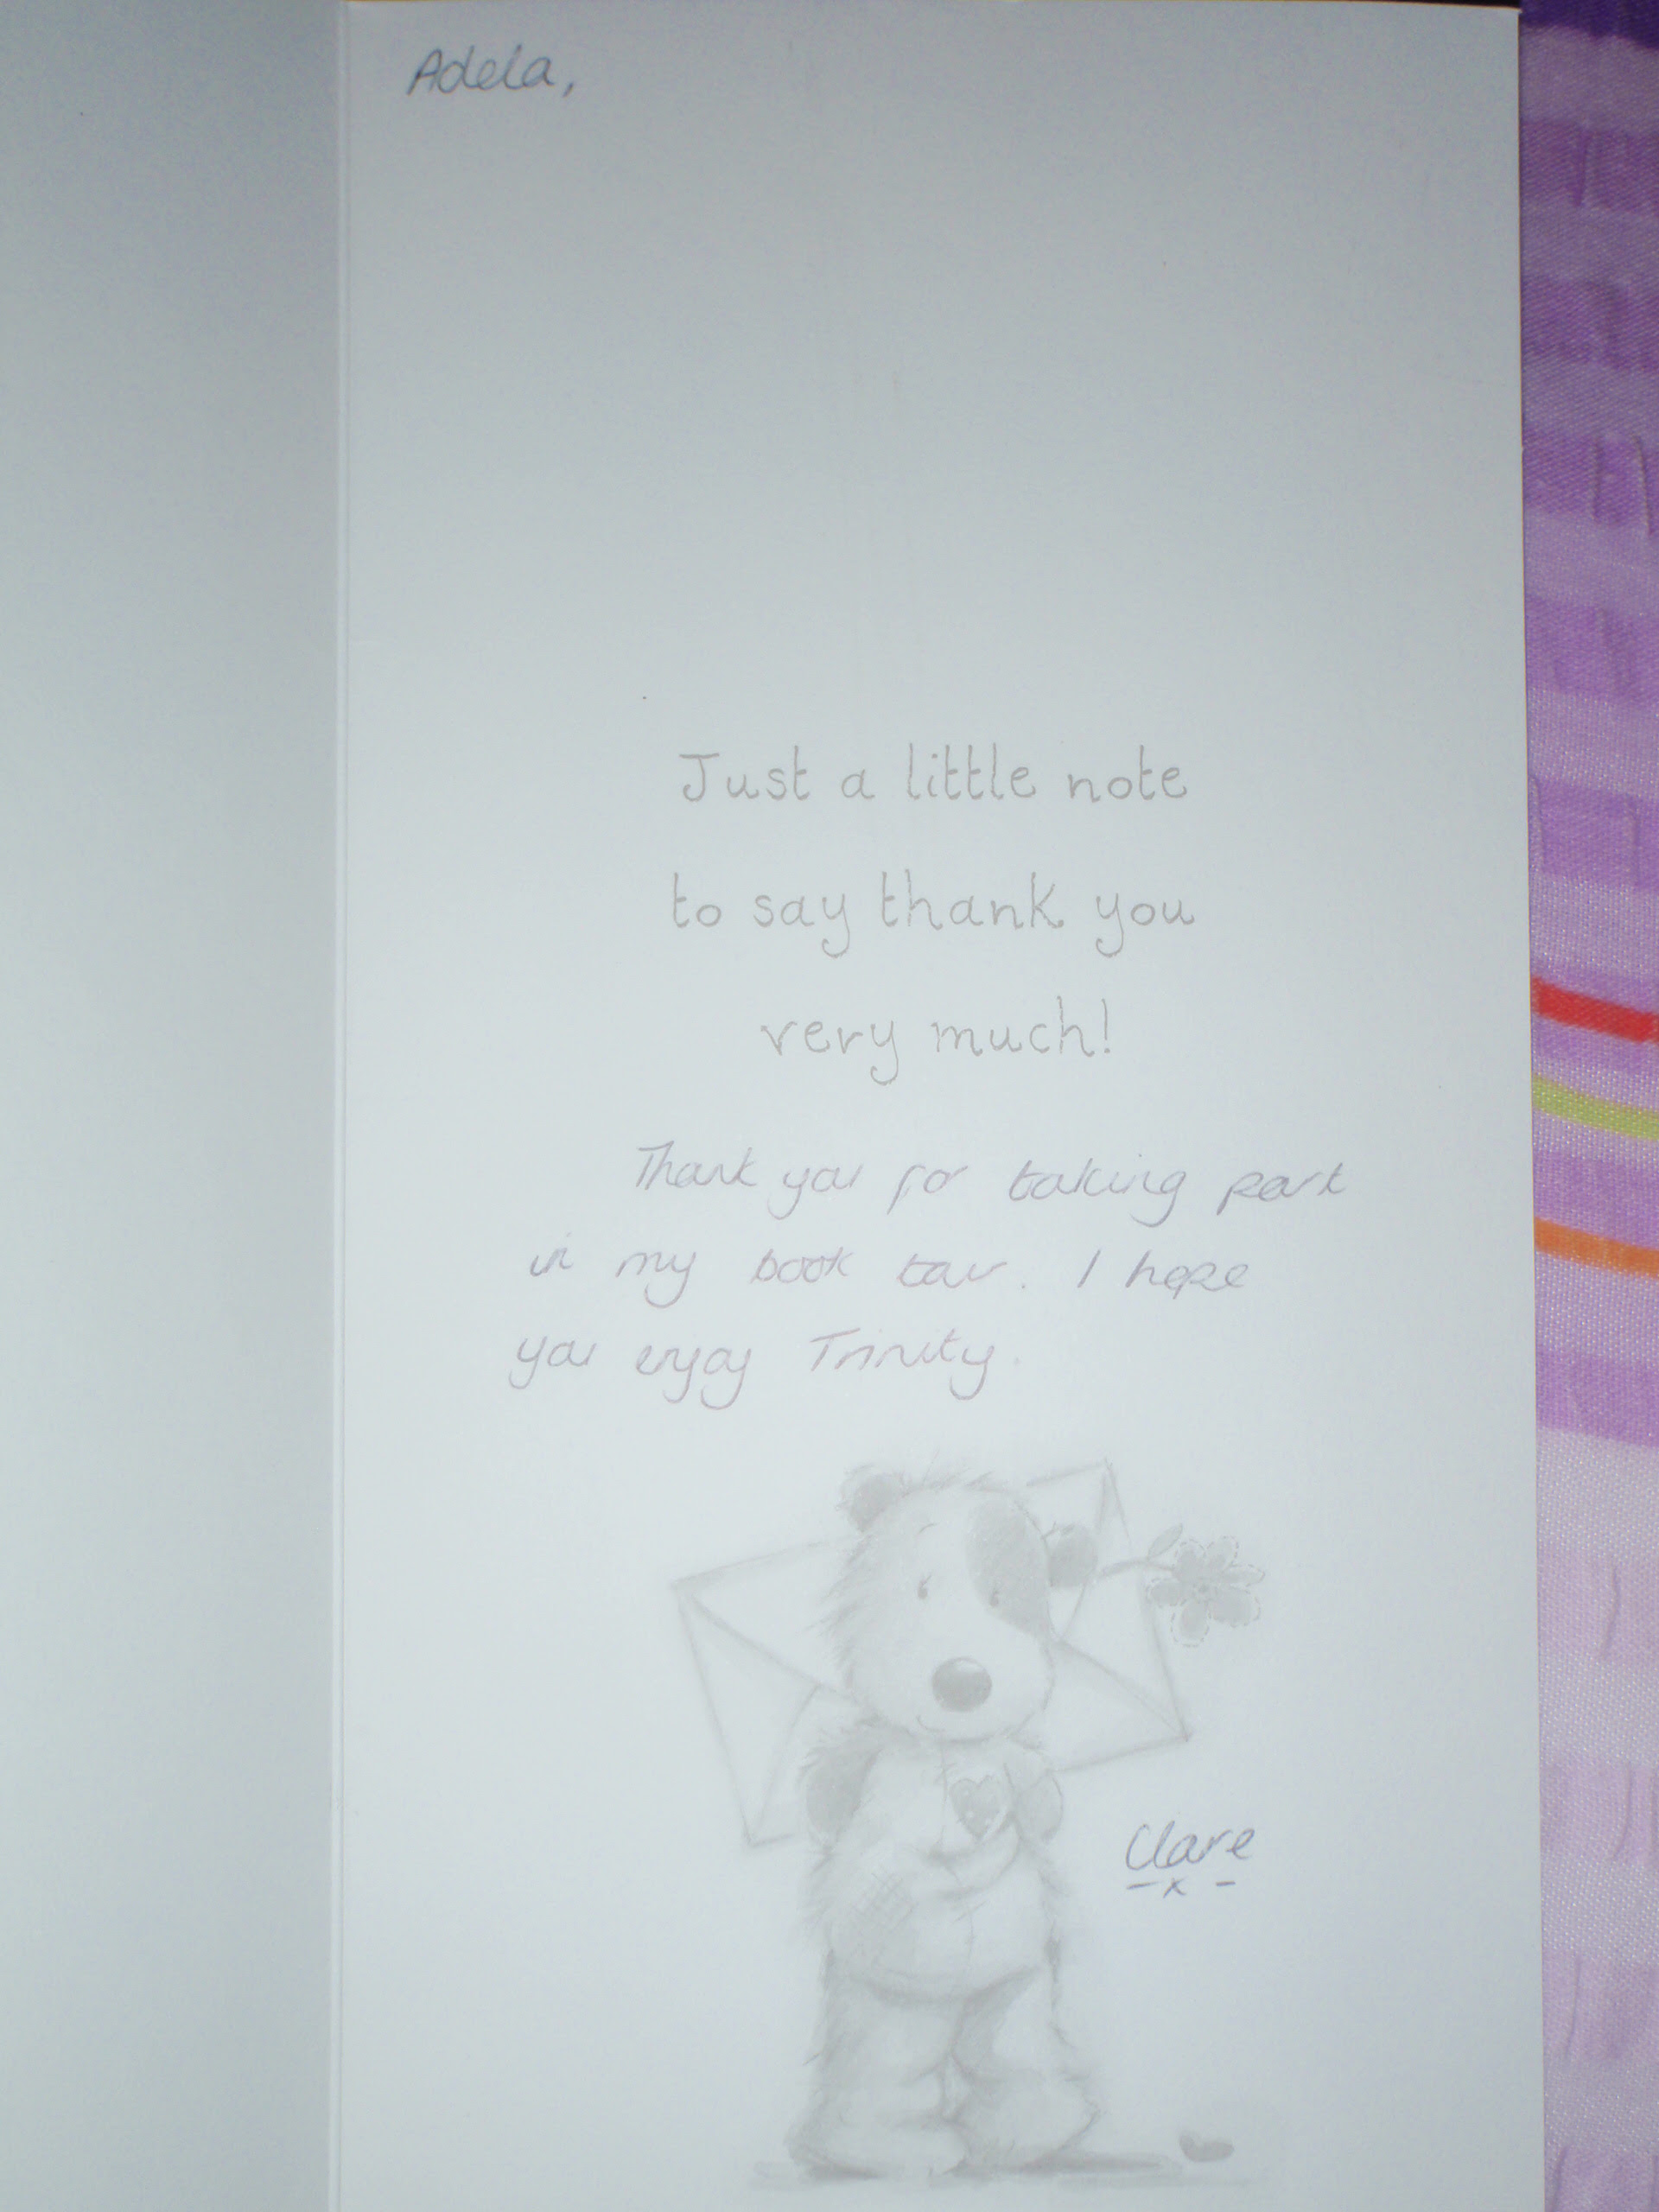 Adela,
Just a little note
to say thank you
very much!
Thank you for taking part
in my book tour. I hope
you enjoy Trinity.
Clare
x